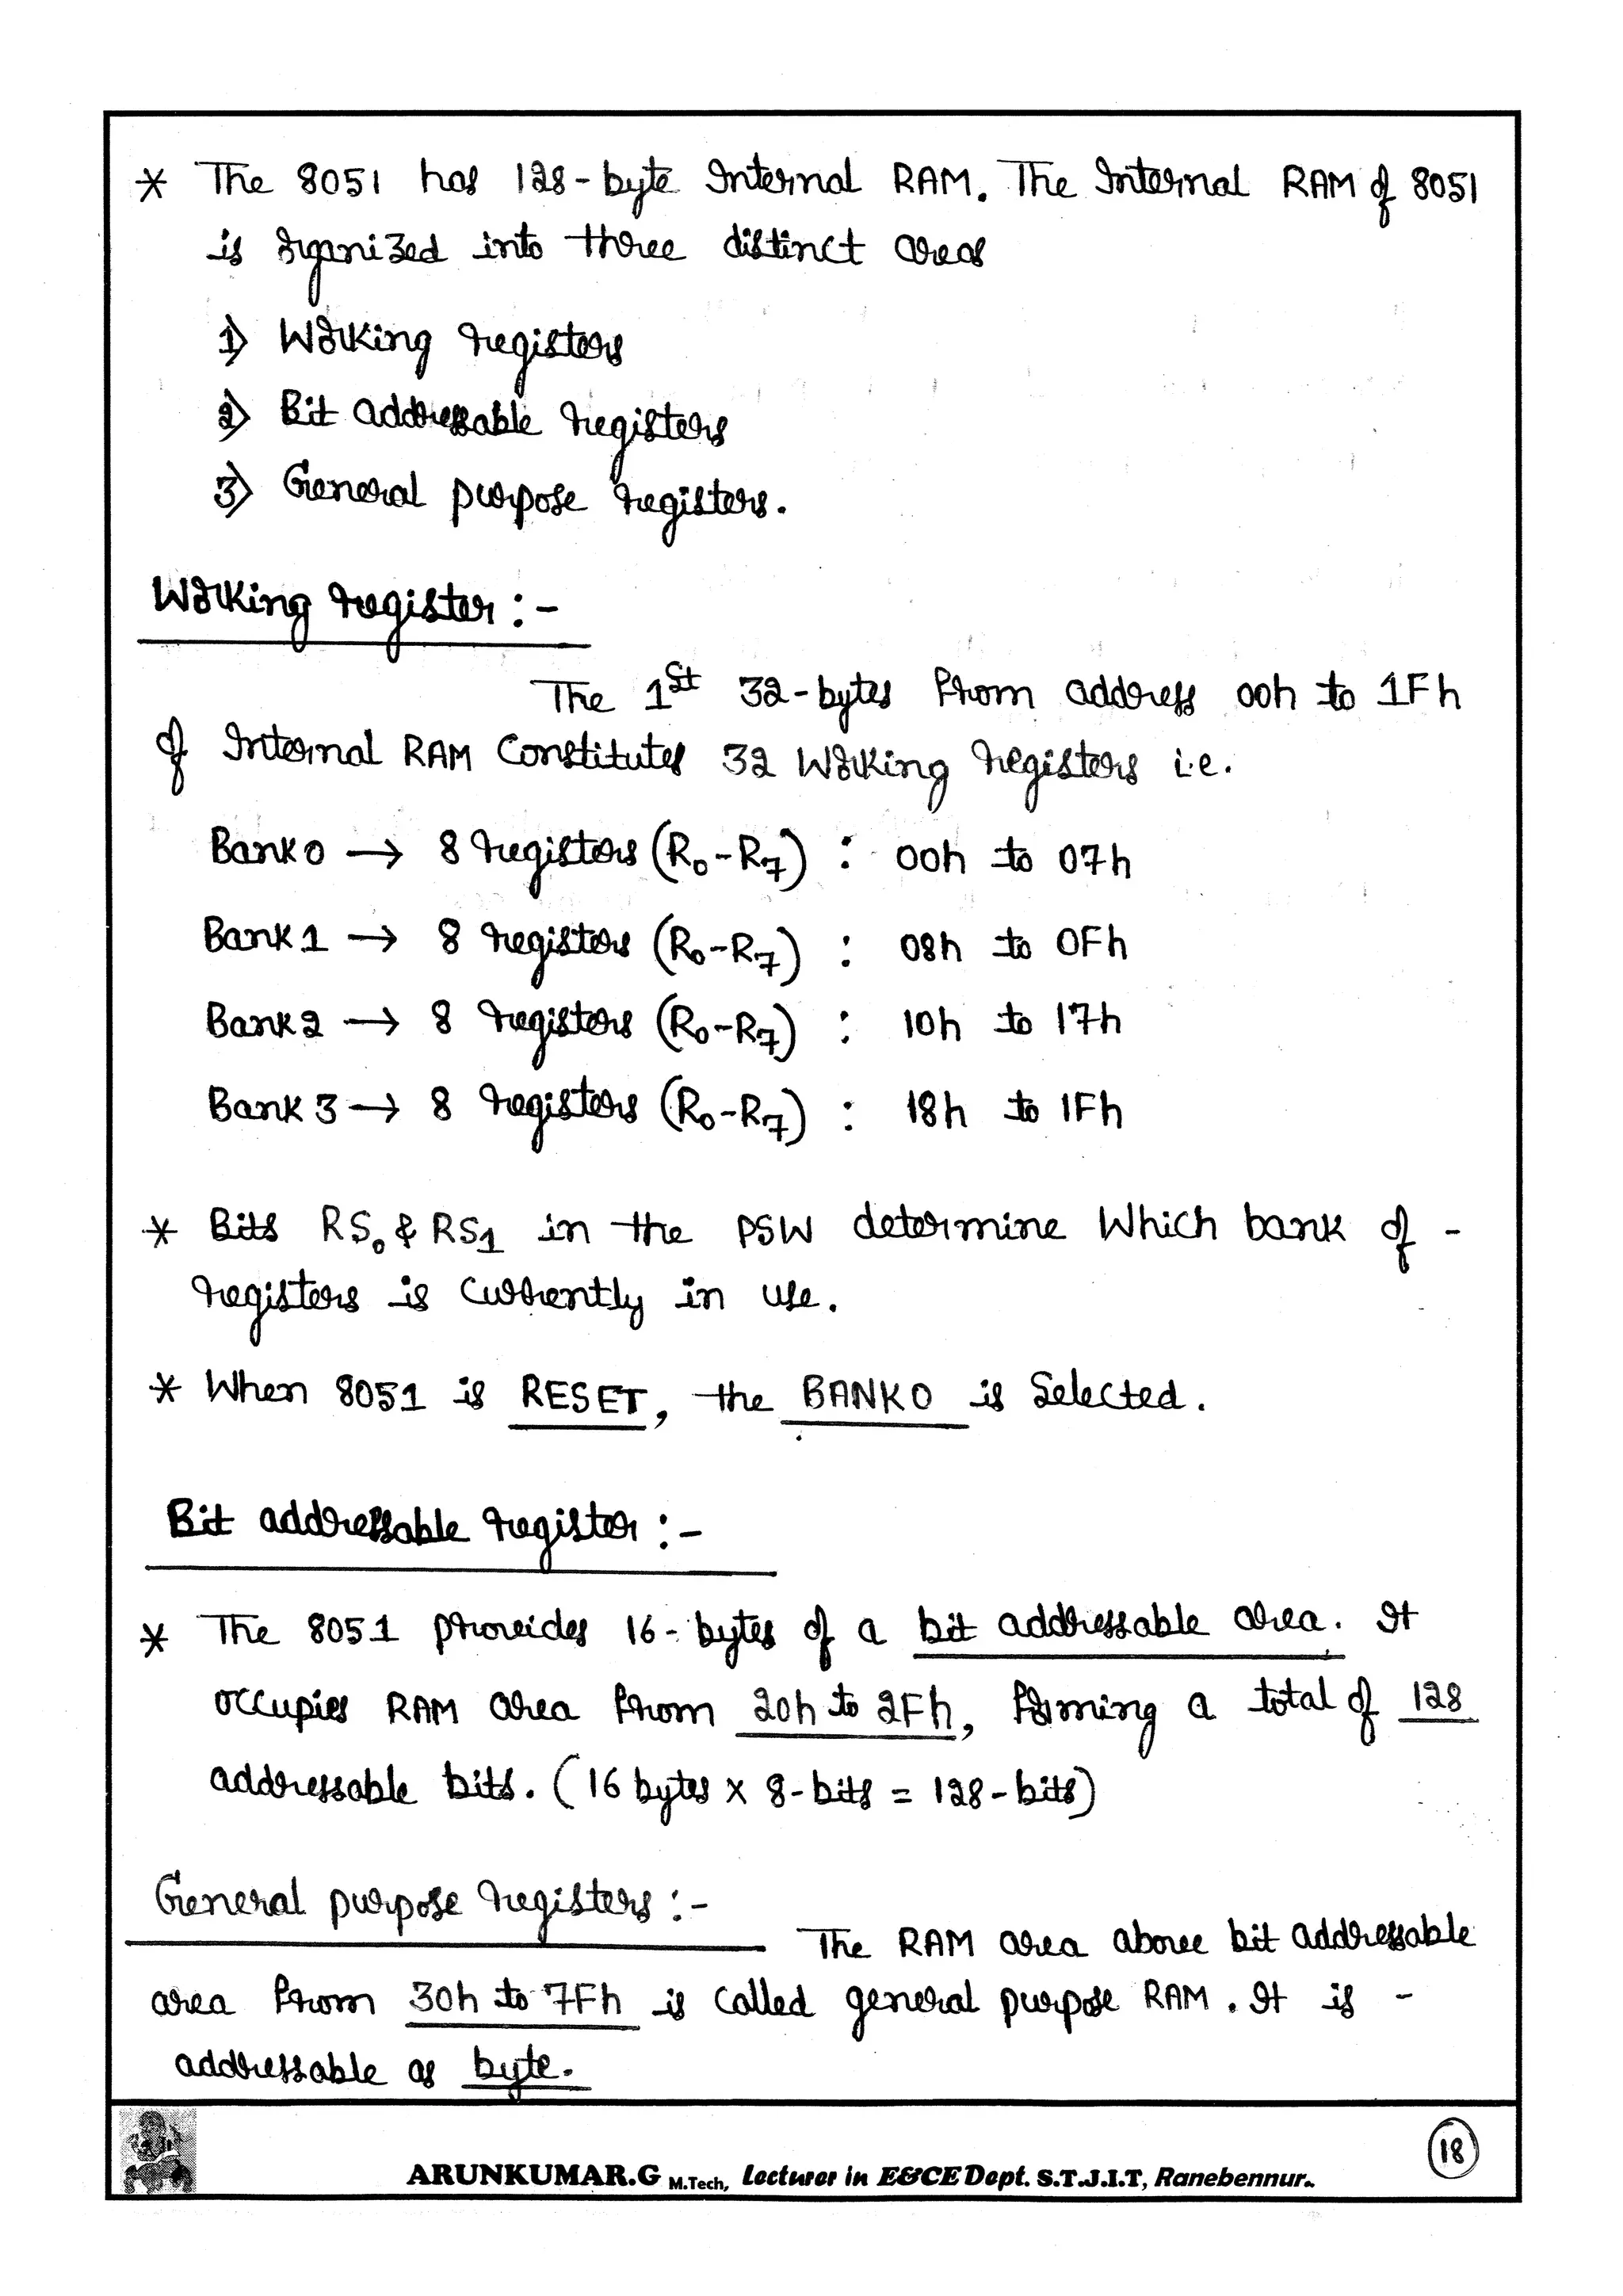 * The 8051 has 128-byte Internal RAM. The Internal RAM of 8051
is organized into three distinct areas
1) Working registers
2) Bit addressable registers
3) General purpose registers.
Working register :-
The 1st 32-bytes from address 00h to 1Fh
of Internal RAM Constitutes 32 Working registers i.e.
Bank 0 → 8 registers (R0-R7) : 00h to 07h
Bank 1 → 8 registers (R0-R7) : 08h to 0Fh
Bank 2 → 8 registers (R0-R7) : 10h to 17h
Bank 3 → 8 registers (R0-R7) : 18h to 1Fh
* Bits RS0 & RS1 in the PSW determine Which bank of -
registers is currently in use.
* When 8051 is RESET, the BANK0 is Selected.
Bit addressable register :-
* The 8051 provides 16-bytes of a bit addressable area. It
occupies RAM area from 20h to 2Fh, forming a total of 128
addressable bits. (16 bytes x 8-bits = 128-bits)
General purpose registers :-
The RAM area above bit addressable
area from 30h to 7Fh is called general purpose RAM. It is -
addressable as byte.
18
ARUNKUMAR.G M.Tech, Lecturer in E&CE Dept. S.T.J.I.T, Ranebennur..